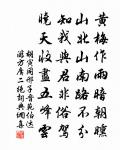 黃梅作雨暗朝曛
山北山南路不分
知我與君非俗駕
曉天收盡五峰雲
胡寅同邢子晉范伯達
游方廣二絕